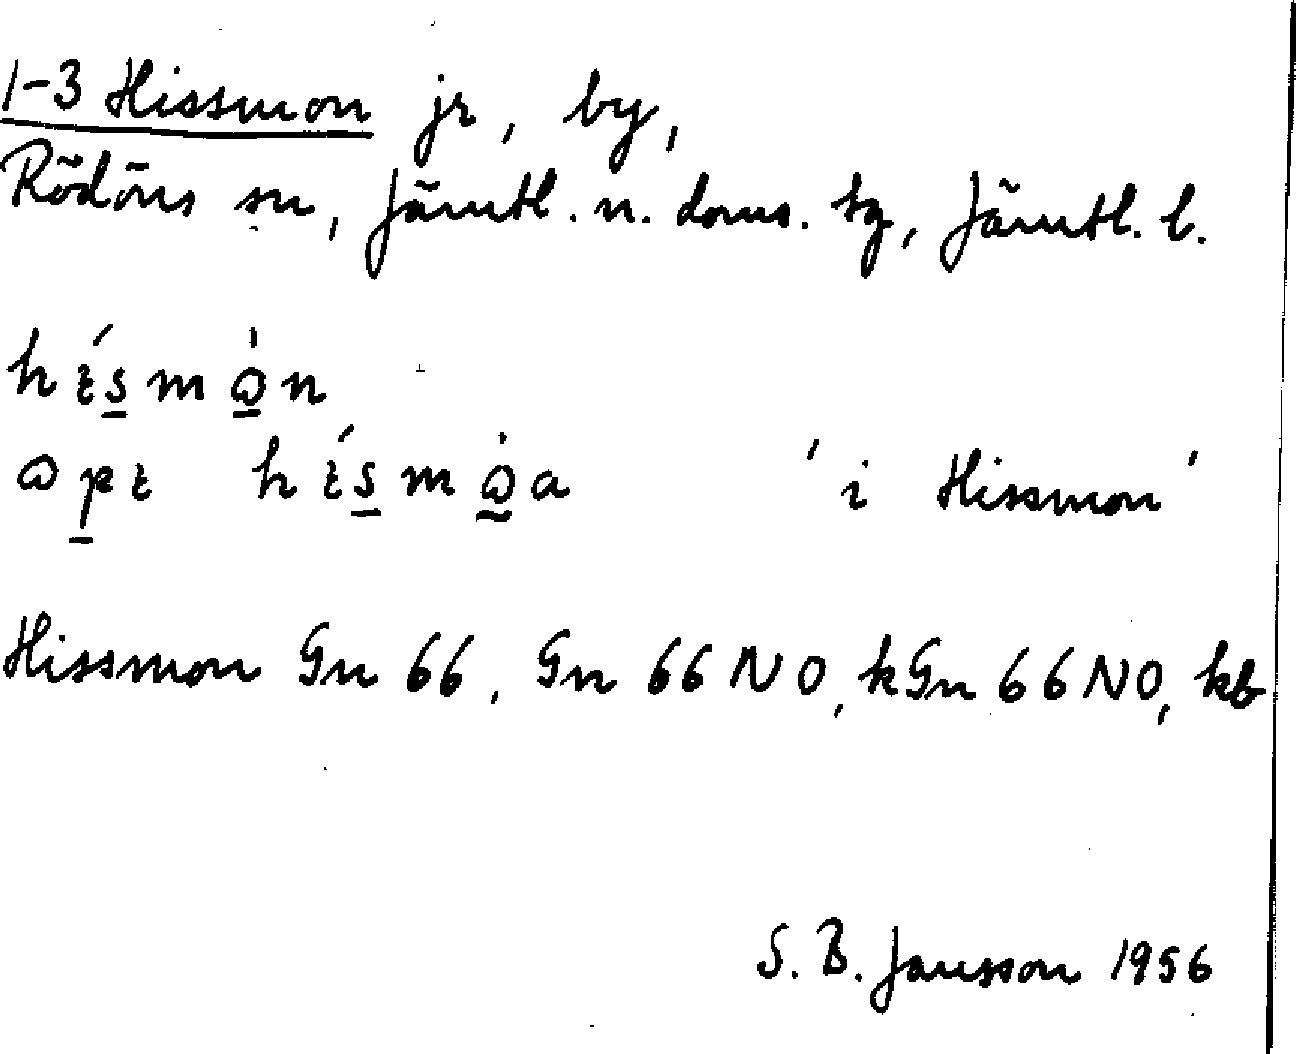 1-3 Hissmon jr, by,
Rödöns sn, Jämtl. n. doms. tg, Jämtl. l.
hísmòn
opi hísmòa 'i Hissmon'
Hissmon Gn 66, Gn 66 NO, kGn 66 NO, kb
S. B. Jansson 1956